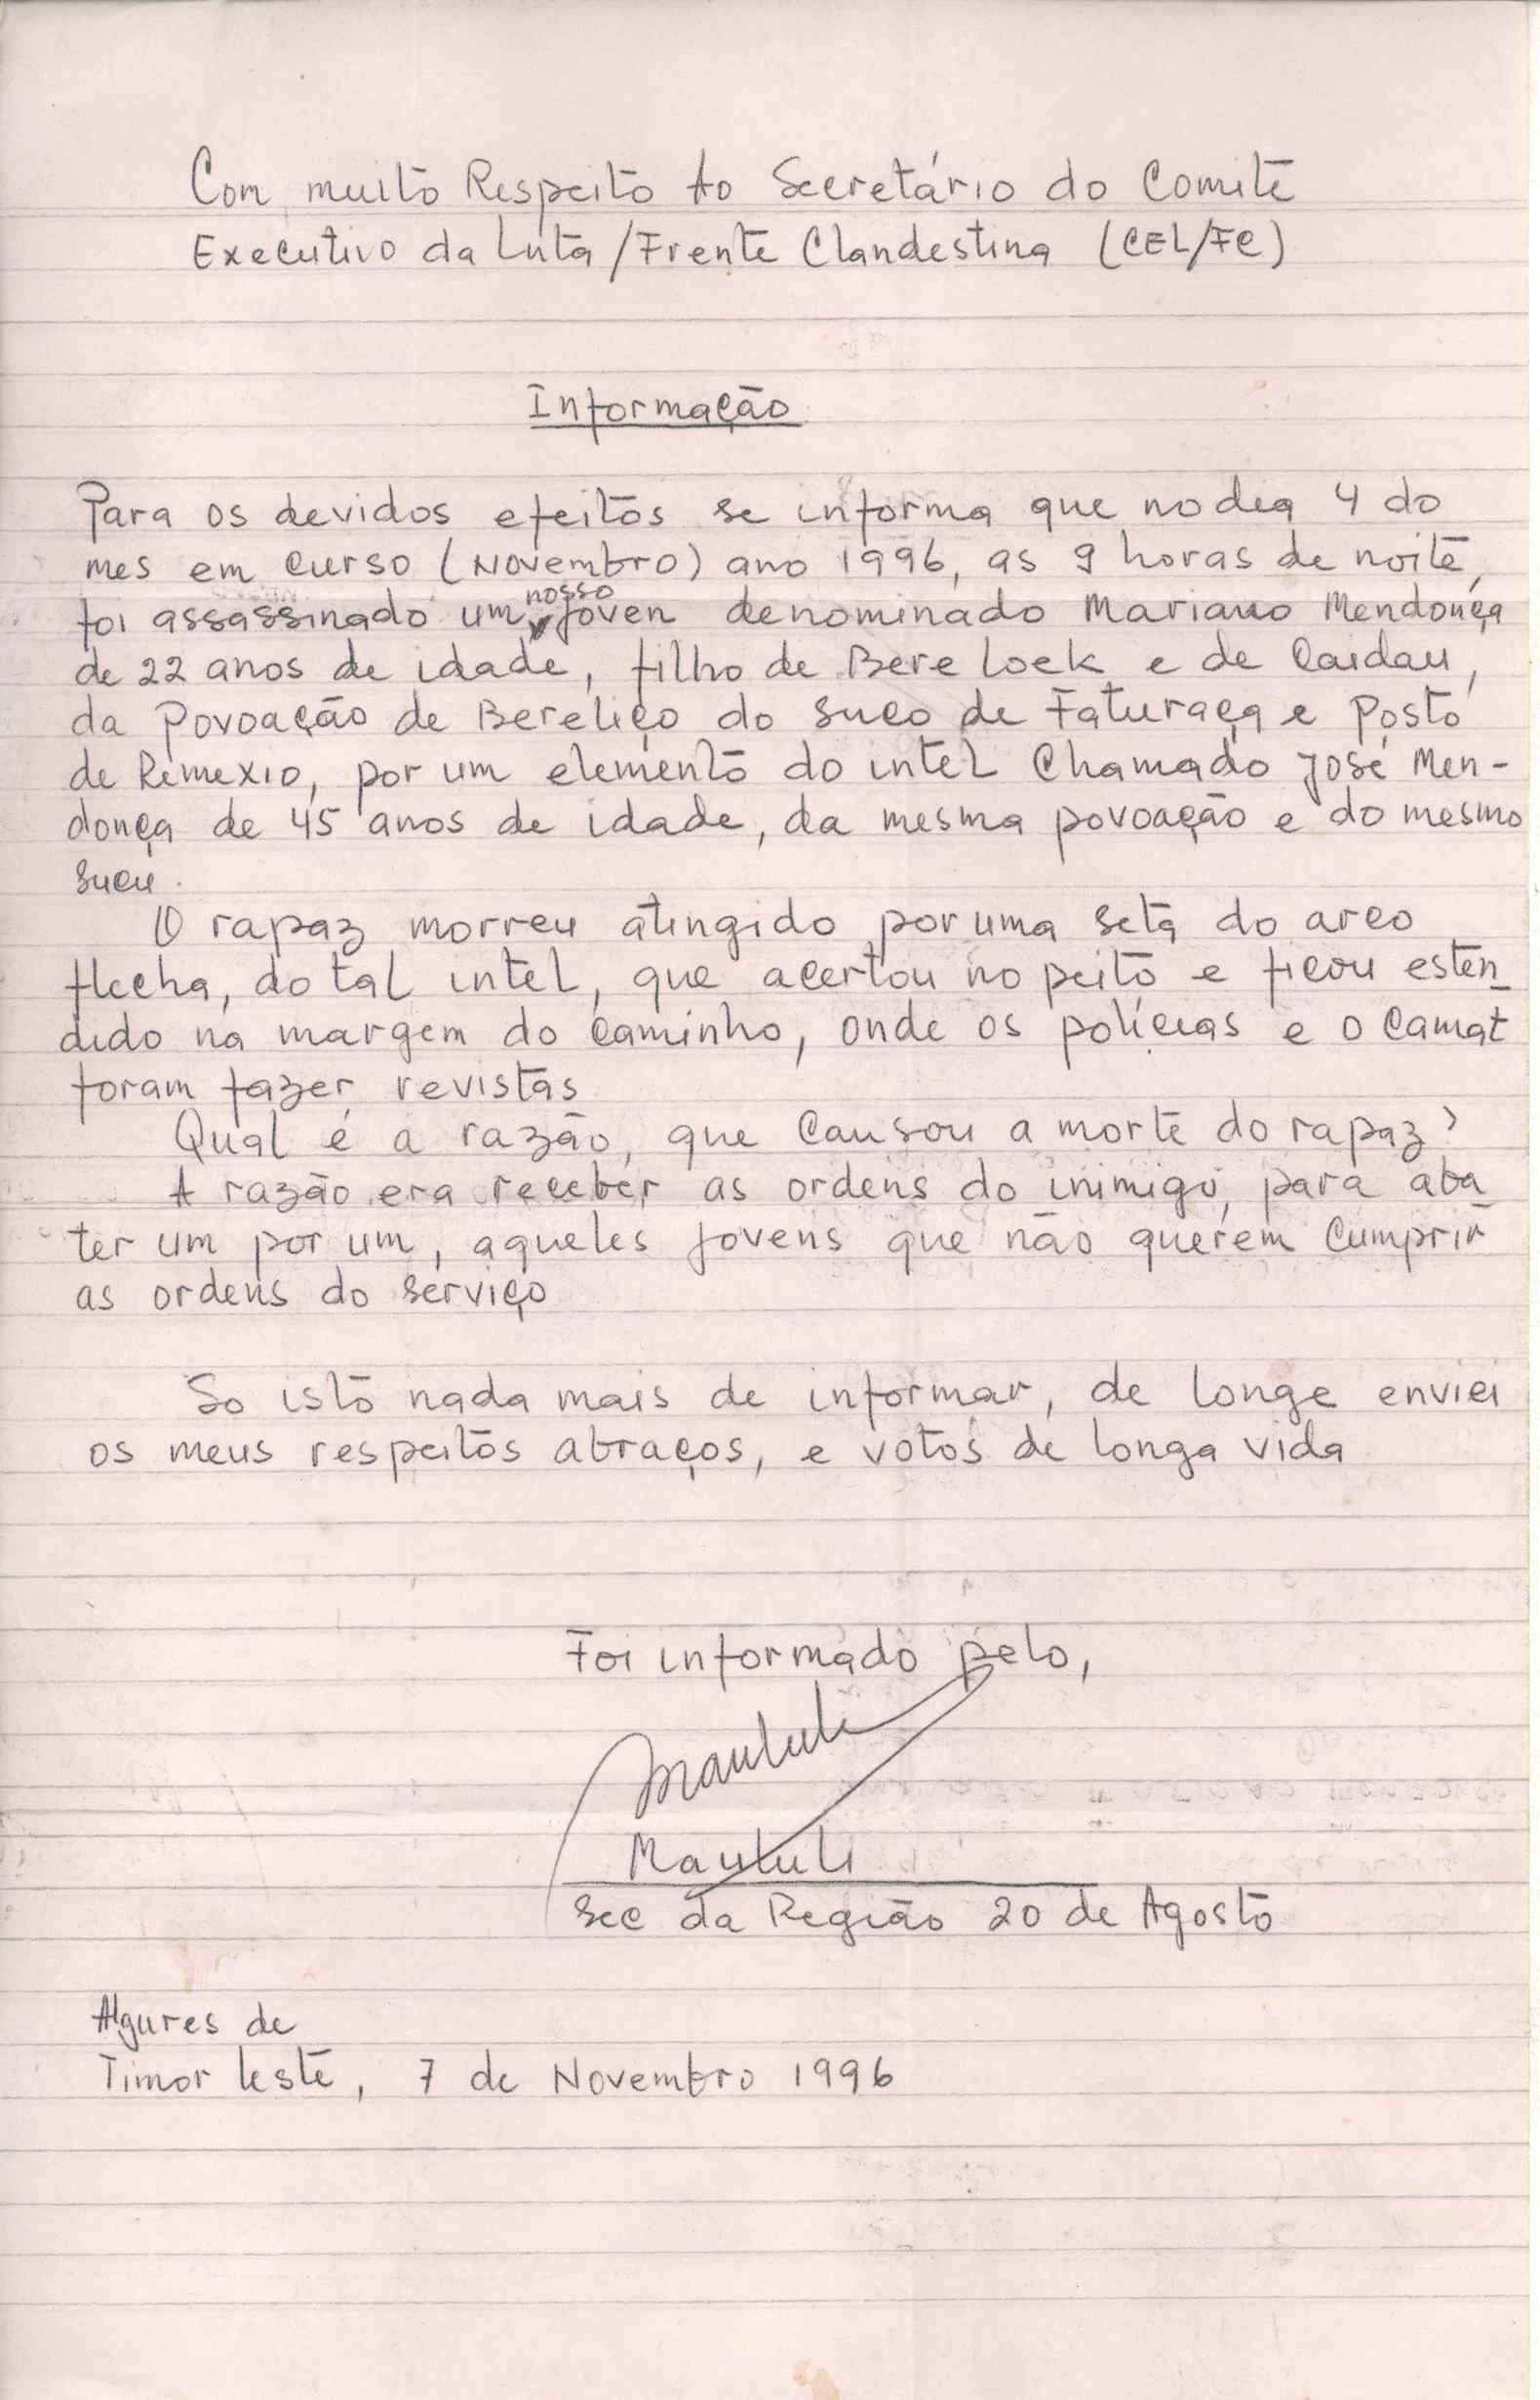 Com muito Respeito Ao Secretário do Comite
Executivo da Luta/Frente Clandestina (CEL/FC)
Informação
Para os devidos efeitos se informa que no dia 4 do
mes em curso (Novembro) ano 1996, as 9 horas de noite,
foi assassinado um nosso joven denominado Mariano Mendonça
de 22 anos de idade, filho de Bere Loek e de Caidau,
da Povoação de Bereliço do suco de Faturaça e Posto
de Remexio, por um elemento do intel Chamado José Men-
donça de 45 anos de idade, da mesma povoação e do mesmo
sucu.
O rapaz morreu atingido por uma seta do arco
flecha, do tal intel, que acertou no peito e ficou esten
dido na margem do caminho, onde os polícias e o Camat
foram fazer revistas
Qual é a razão, que causou a morte do rapaz?
A razão era receber as ordens do inimigo, para aba
ter um por um, aqueles jovens que não querem cumprir
as ordens do serviço
So isto nada mais de informar, de longe enviei
os meus respeitos abraços, e votos de longa vida
Foi informado pelo,
Mautuli
Mautuli
Sec da Região 20 de Agosto
Algures de
Timor leste, 7 de Novembro 1996